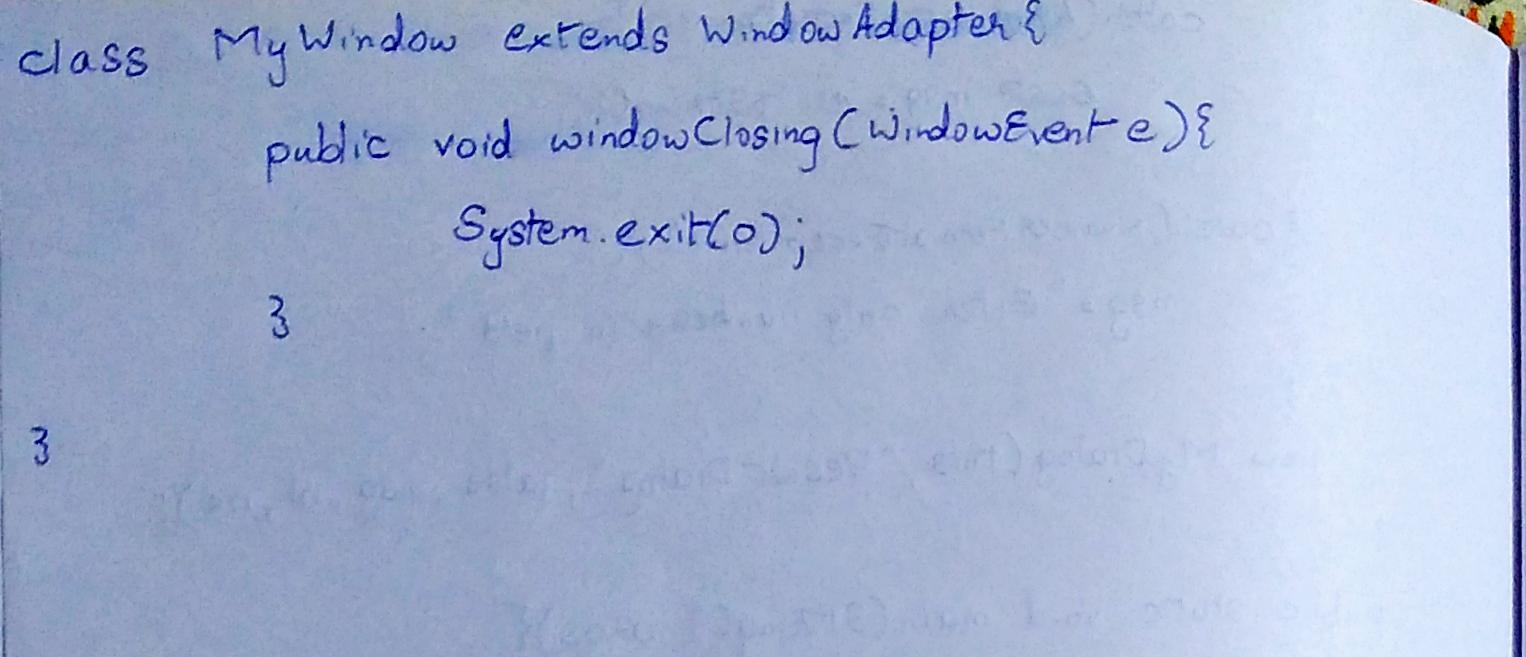 class MyWindow extends WindowAdapter{
public void windowClosing(WindowEvent e){
System.exit(0);
}
}